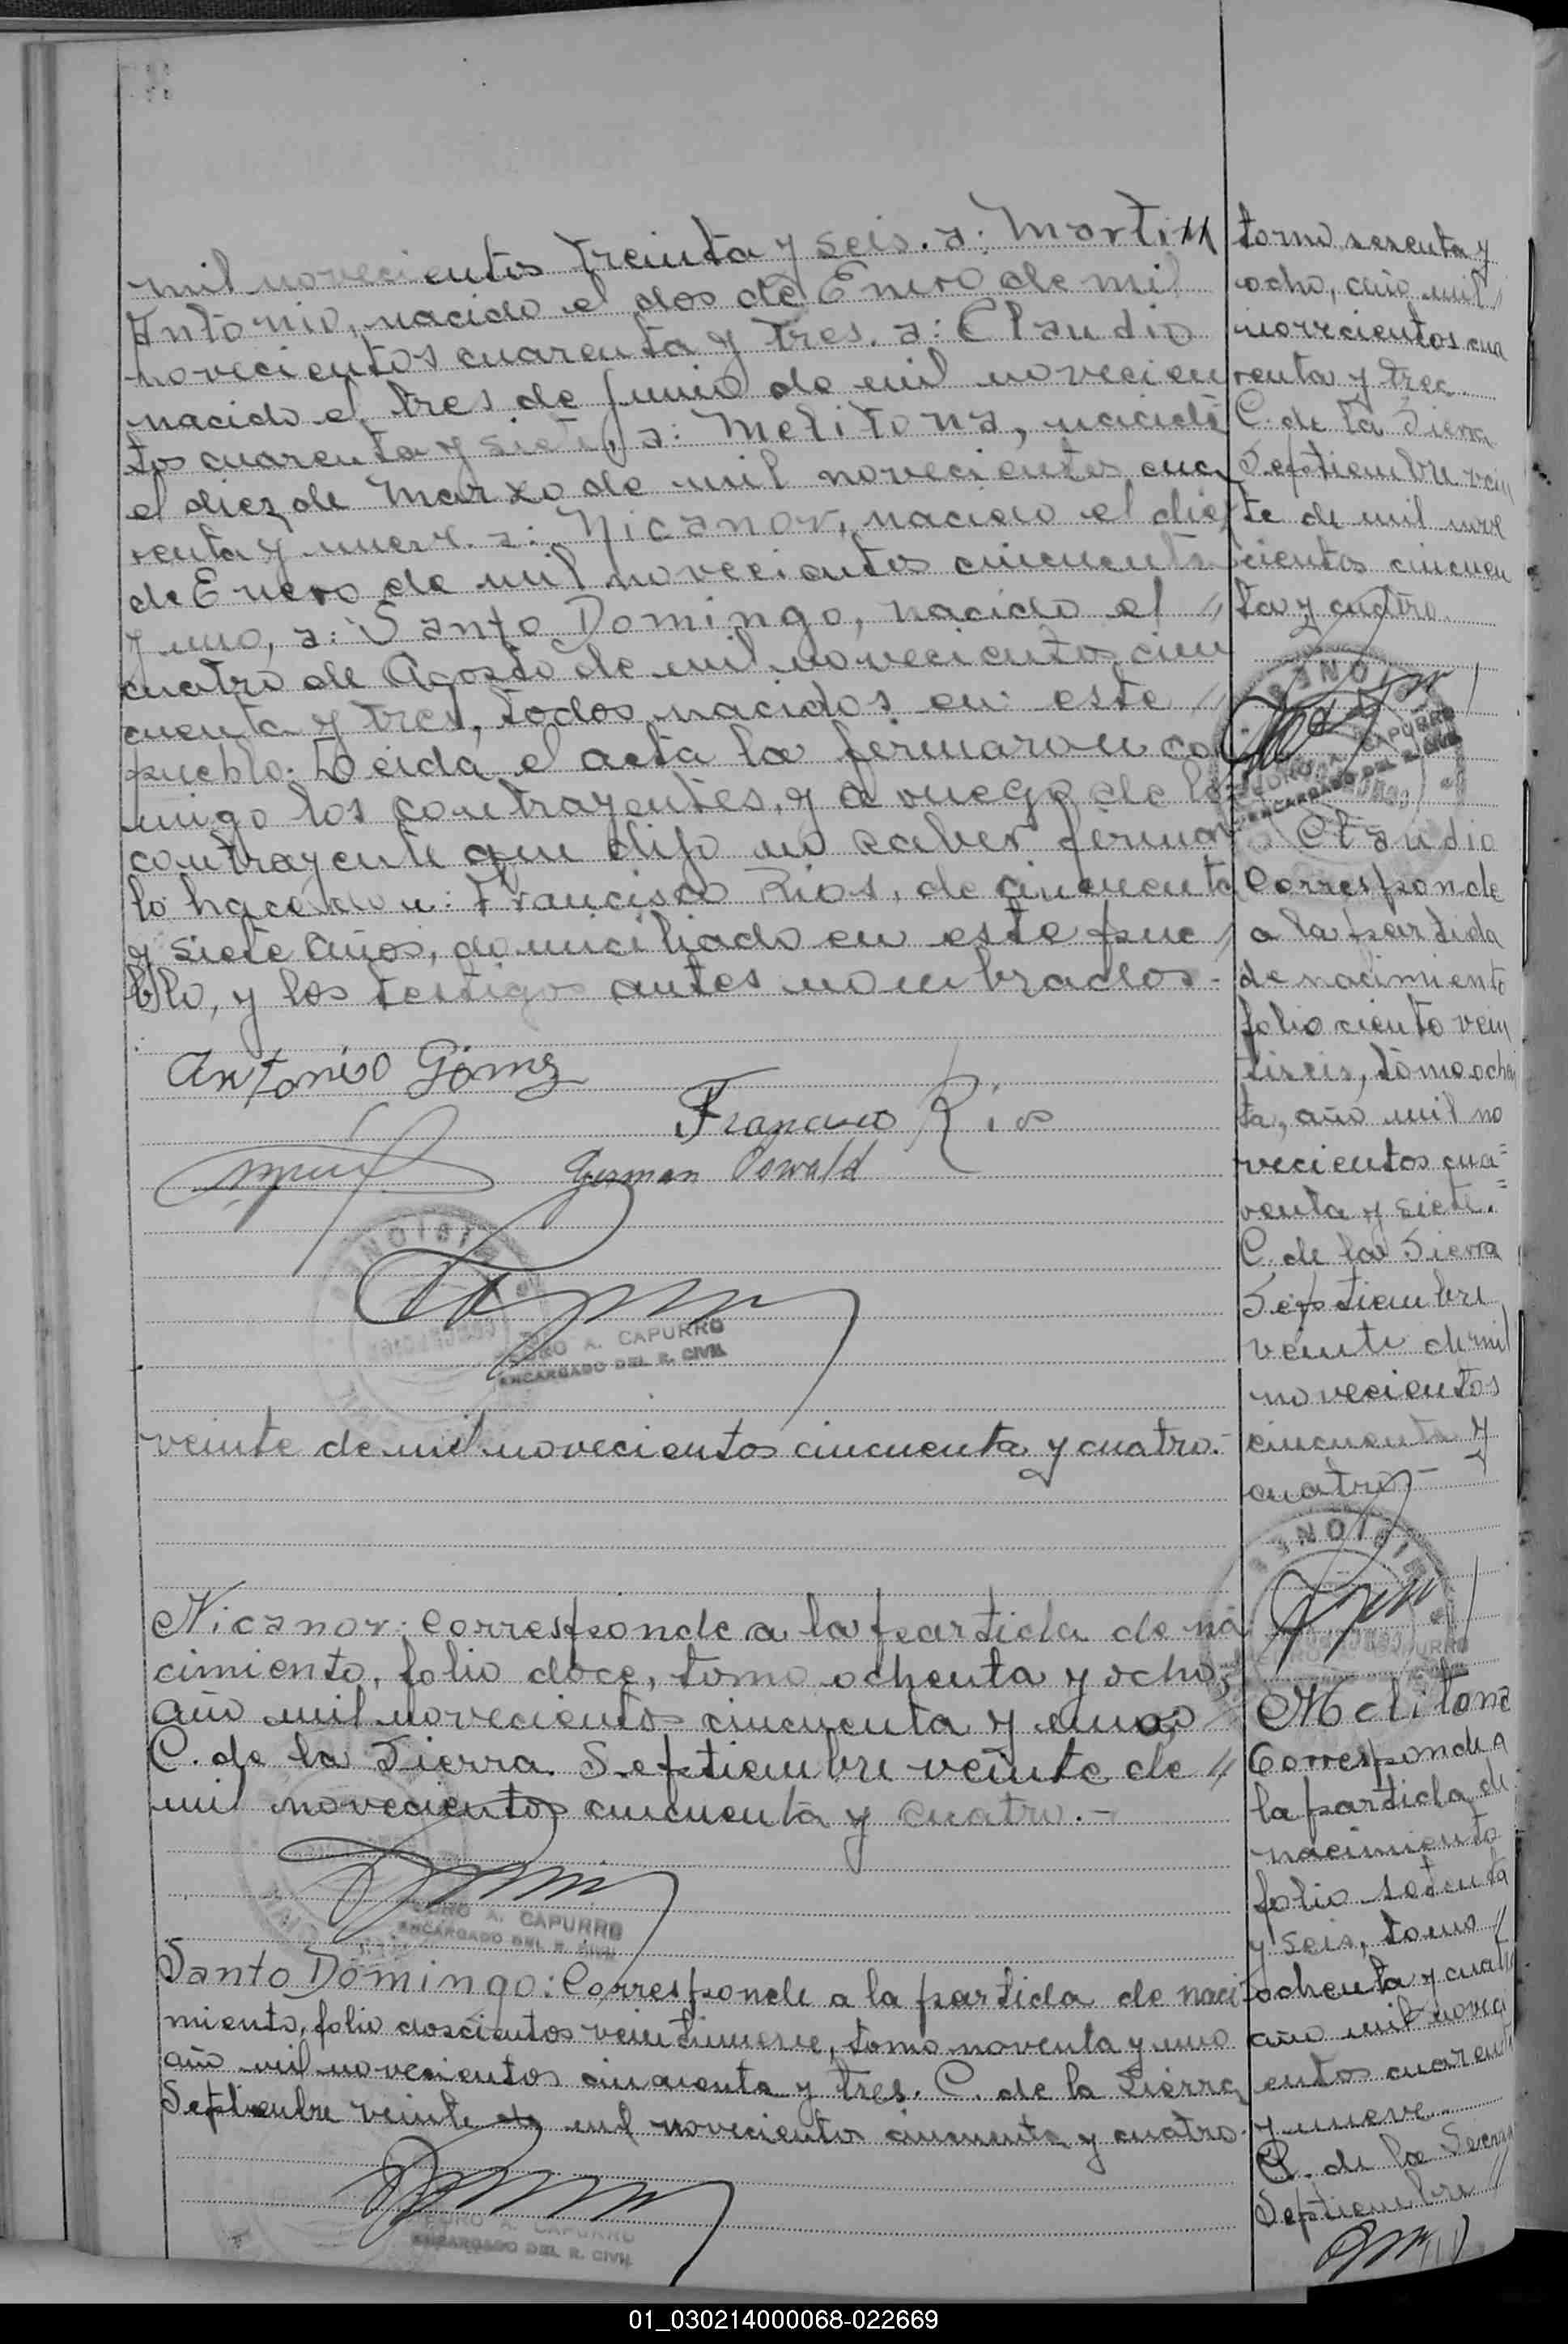 mil novecientos treinta y seis. a: Martin
Antonio, nacido el dos de Enero de mil
novecientos cuarenta y tres. a: Claudio
nacido el tres de Junio de mil novecien
tos cuarenta y siete, a: Melitona, nacida
el diez de Marzo de mil novecientos cua
renta y nueve. a: Nicanor, nacido el diez
de Enero de mil novecientos cincuenta
y uno, a: Santo Domingo, nacido el //
cuatro de Agosto de mil novecientos cin
cuenta y tres, todos nacidos en este //
pueblo. Leida el acta la firmaron co
migo los contrayentes, y a ruego de la
contrayente que dijo no saber firmar
lo hace don: Francisco Rios, de cincuenta
y siete años, domiciliado en este pue //
blo, y los testigos antes nombrados.-
Antonio Gómez
Francisco Rios
German Oswald
PEDRO A. CAPURRO
ENCARGADO DEL R. CIVIL
veinte de mil novecientos cincuenta y cuatro.-
Nicanor: Corresponde a la partida de na
cimiento, folio doce, tomo ochenta y ocho,
año mil novecientos cincuenta y uno
C. de la Sierra. Septiembre veinte de //
mil novecientos cincuenta y cuatro.-
PEDRO A. CAPURRO
ENCARGADO DEL R. CIVIL
Santo Domingo: Corresponde a la partida de naci
miento, folio doscientos veintinueve, tomo noventa y uno
año mil novecientos cincuenta y tres. C. de la Sierra
Septiembre veinte de mil novecientos cincuenta y cuatro.
PEDRO A. CAPURRO
ENCARGADO DEL R. CIVIL
tomo sesenta y
ocho, año mil //
novecientos cua
renta y tres.
C. de la Sierra
Septiembre vein
te de mil nove
cientos cincuen
ta y cuatro.
MISIONES
PEDRO A. CAPURRO
ENCARGADO DEL R. CIVIL
Claudio
Corresponde
a la partida
de nacimiento
folio ciento vein
tiseis, tomo ochen
ta, año mil no
vecientos cua=
renta y siete.=
C. de la Sierra
Septiembre
veinte de mil
novecientos
cincuenta y
cuatro.-
MISIONES
PEDRO A. CAPURRO
Melitona
Corresponde a
la partida de
nacimiento
folio setenta
y seis, tomo //
ochenta y cuatro
año mil noveci
entos cuarenta
y nueve.
C. de la Sierra
Septiembre //
01_030214000068-022669